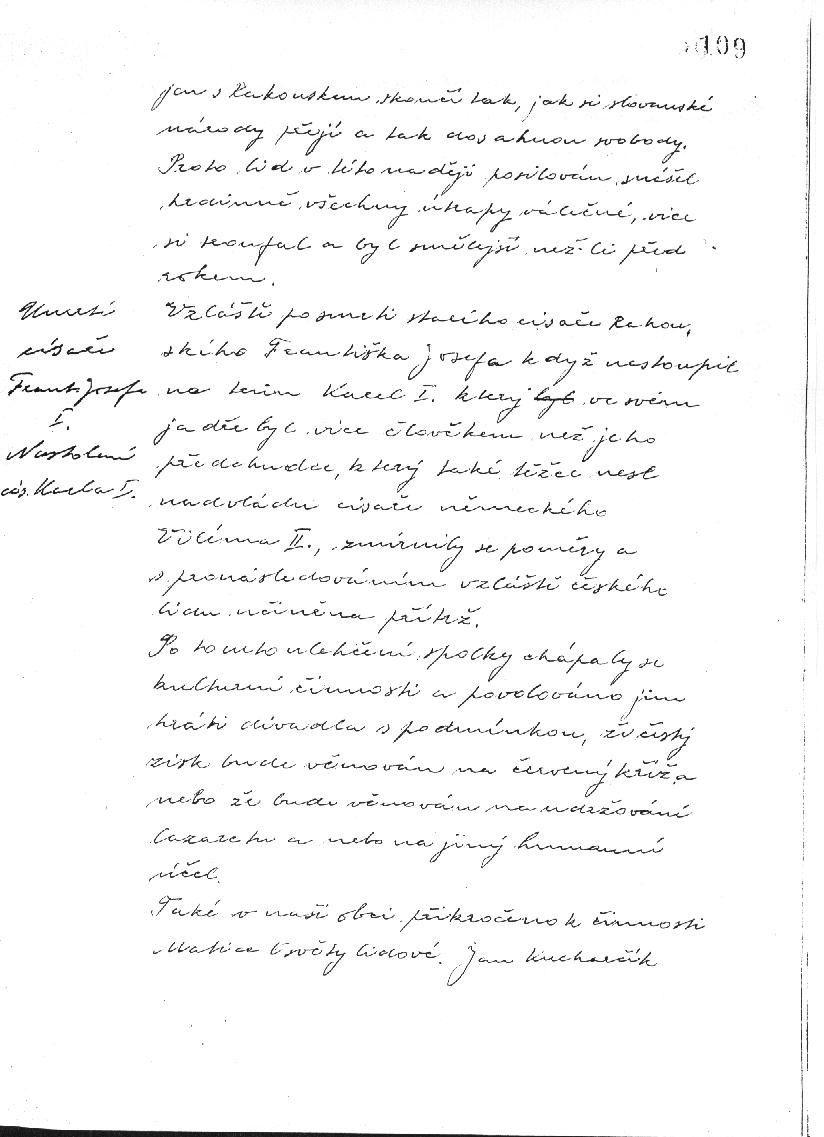 109
jen s Rakouskem skončí tak, jak si slovanské
národy přejí a tak dosáhnou svobody.
Proto lid v této naději posilován, snášel
hrdinně všechny útrapy válečné, více
si troufal a byl smělejší než-li před
rokem.
Úmrtí
císaře
Frant. Josefa
I.
Nastolení
cís. Karla I.
Vzláště po smrti starého císaře Rakou,
ského Františka Josefa když nastoupil
na trůn Karel I. který byl ve svém
jadře byl více člověkem než jeho
předchůdce, který také těžce nesl
nadvládu císaře německého
Viléma II., zmírnily se poměry a
s pronásledováním vzláště českého
lidu učiněna přítrž.
Po tomto ulehčení spolky chápaly se
kulturní činnosti a povolováno jim
hráti divadla s podmínkou, že čistý
zisk bude věnován na červený kříž a
nebo že bude věnován na udržování
lazaretu a nebo na jiný humanní
účel.
Také v naší obci přikročeno k činnosti
Matice Osvěty lidové. Jan Kucharčík